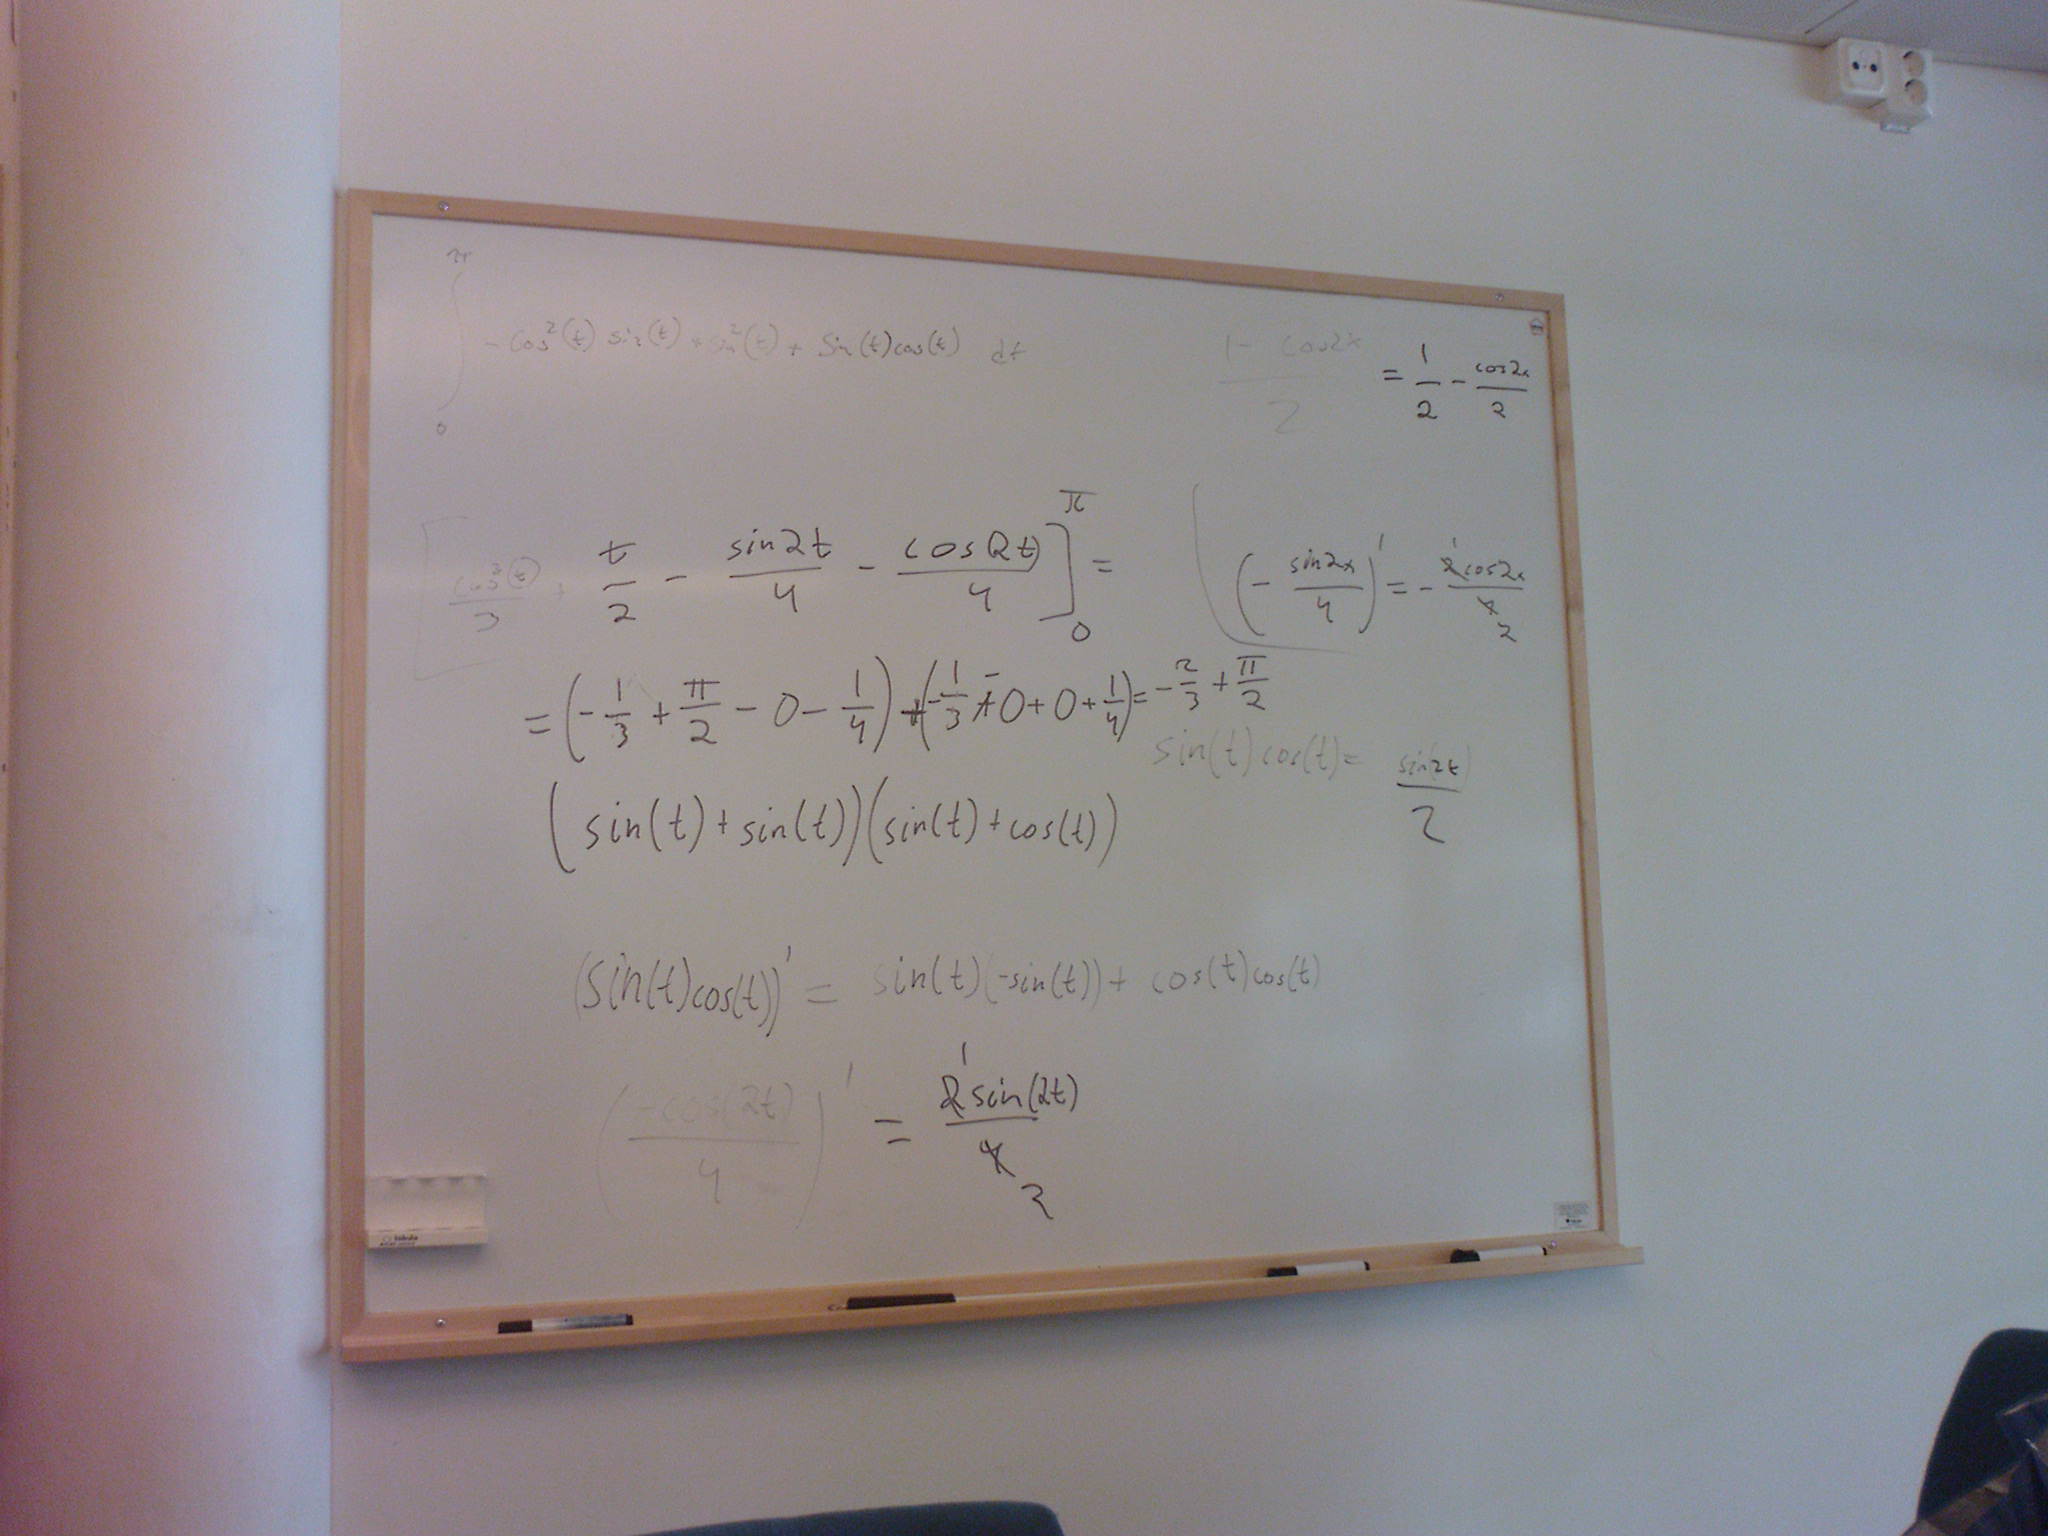 π
∫ - cos²(t) sin(t) + sin²(t) + sin(t)cos(t) dt
0
1 - cos2x / 2 = 1/2 - cos2x/2
[cos³(t)/3 + t/2 - sin2t/4 - cos(2t)/4]₀^π =
(- sin2x/4)' = - 2cos2x/4 1 2
= (-1/3 + π/2 - 0 - 1/4) + (-1/3 - 0 + 0 + 1/4) = -2/3 + π/2
sin(t)cos(t) = sin(2t)/2
(sin(t) + sin(t))(sin(t) + cos(t))
(sin(t)cos(t))' = sin(t)(-sin(t)) + cos(t)cos(t)
(-cos(2t)/4)' = 2sin(2t)/4 1 2